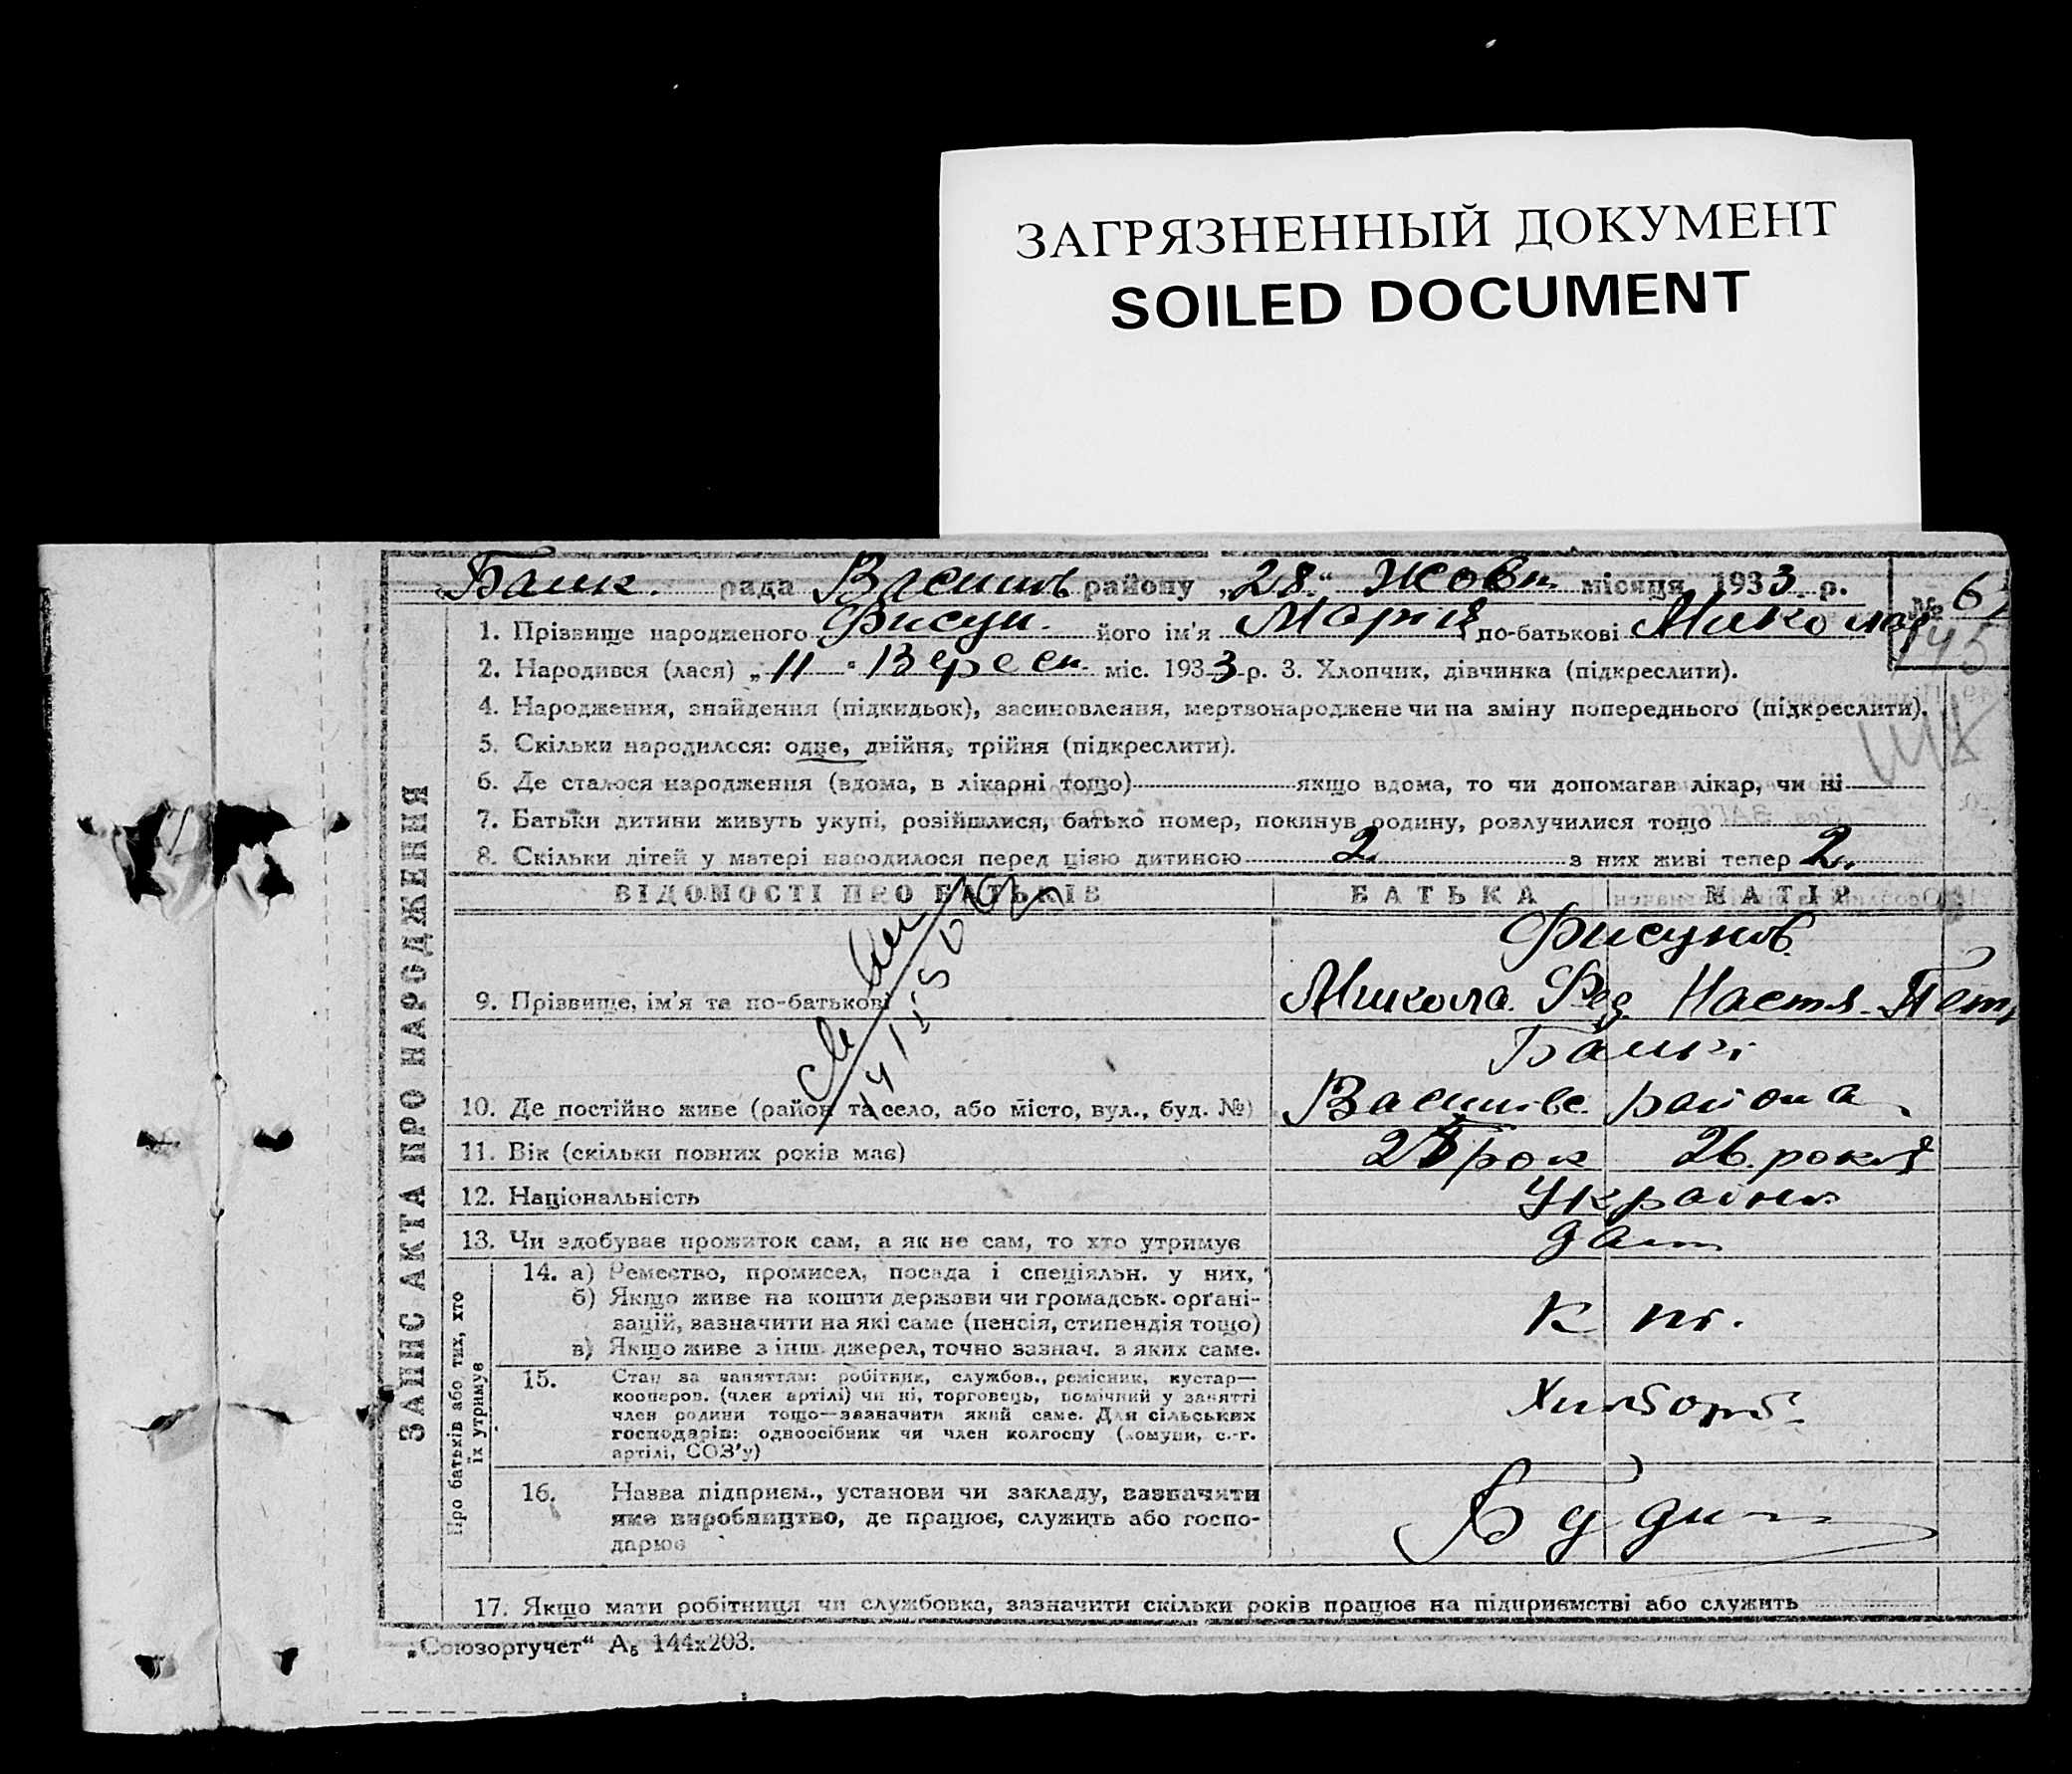 ЗАГРЯЗНЕННЫЙ ДОКУМЕНТ
SOILED DOCUMENT
рада району „28“ Жовт місяця 1933 р.
№ 6
145
1. Прізвище народженого Фисун. його ім'я Марія по-батькові Микола
2. Народився (лася) „11“ Вересн міс. 1933 р. 3. Хлопчик, дівчинка (підкреслити).
4. Народження, знайдення (підкидьок), засиновлення, мертвонароджене чи на зміну попереднього (підкреслити).
5. Скільки народилося: одне, двійня, трійня (підкреслити).
6. Де сталося народження (вдома, в лікарні тощо) якщо вдома, то чи допомагав лікар, чи ні
7. Батьки дитини живуть укупі, розійшлися, батько помер, покинув родину, розлучилися тощо
8. Скільки дітей у матері народилося перед цією дитиною 2. з них живі тепер 2.
ВІДОМОСТІ ПРО БАТЬКІВ БАТЬКА МАТІР
Фисунов
9. Прізвище, ім'я та по-батькові Микола Фед Настя Пет
10. Де постійно живе (район та село, або місто, вул., буд. №) района
11. Вік (скільки повних років має) рок 26. років
12. Національність Україн
13. Чи здобуває прожиток сам, а як не сам, то хто утримує
ЗАПИС АКТА ПРО НАРОДЖЕННЯ
Про батьків або тих, хто їх утримує
14. а) Ремество, промисел, посада і спеціяльн. у них,
б) Якщо живе на кошти держави чи громадськ. органі-
зацій, зазначити на які саме (пенсія, стипендія тощо)
в) Якщо живе з інш. джерел, точно зазнач. з яких саме.
15. Стан за заняттям: робітник, службов., ремісник, кустар—
кооперов. (член артілі) чи ні, торговець, помічний у занятті
член родини тощо—зазначити який саме. Для сільських
господарів: одноосібник чи член колгоспу (комуни, с.-г.
артілі, СОЗ'у)
16. Назва підприєм., установи чи закладу, зазначити
яке виробництво, де працює, служить або госпо-
дарює
17. Якщо мати робітниця чи службовка, зазначити скільки років працює на підприємстві або служить
„Союзоргучет“ А₅ 144x203.